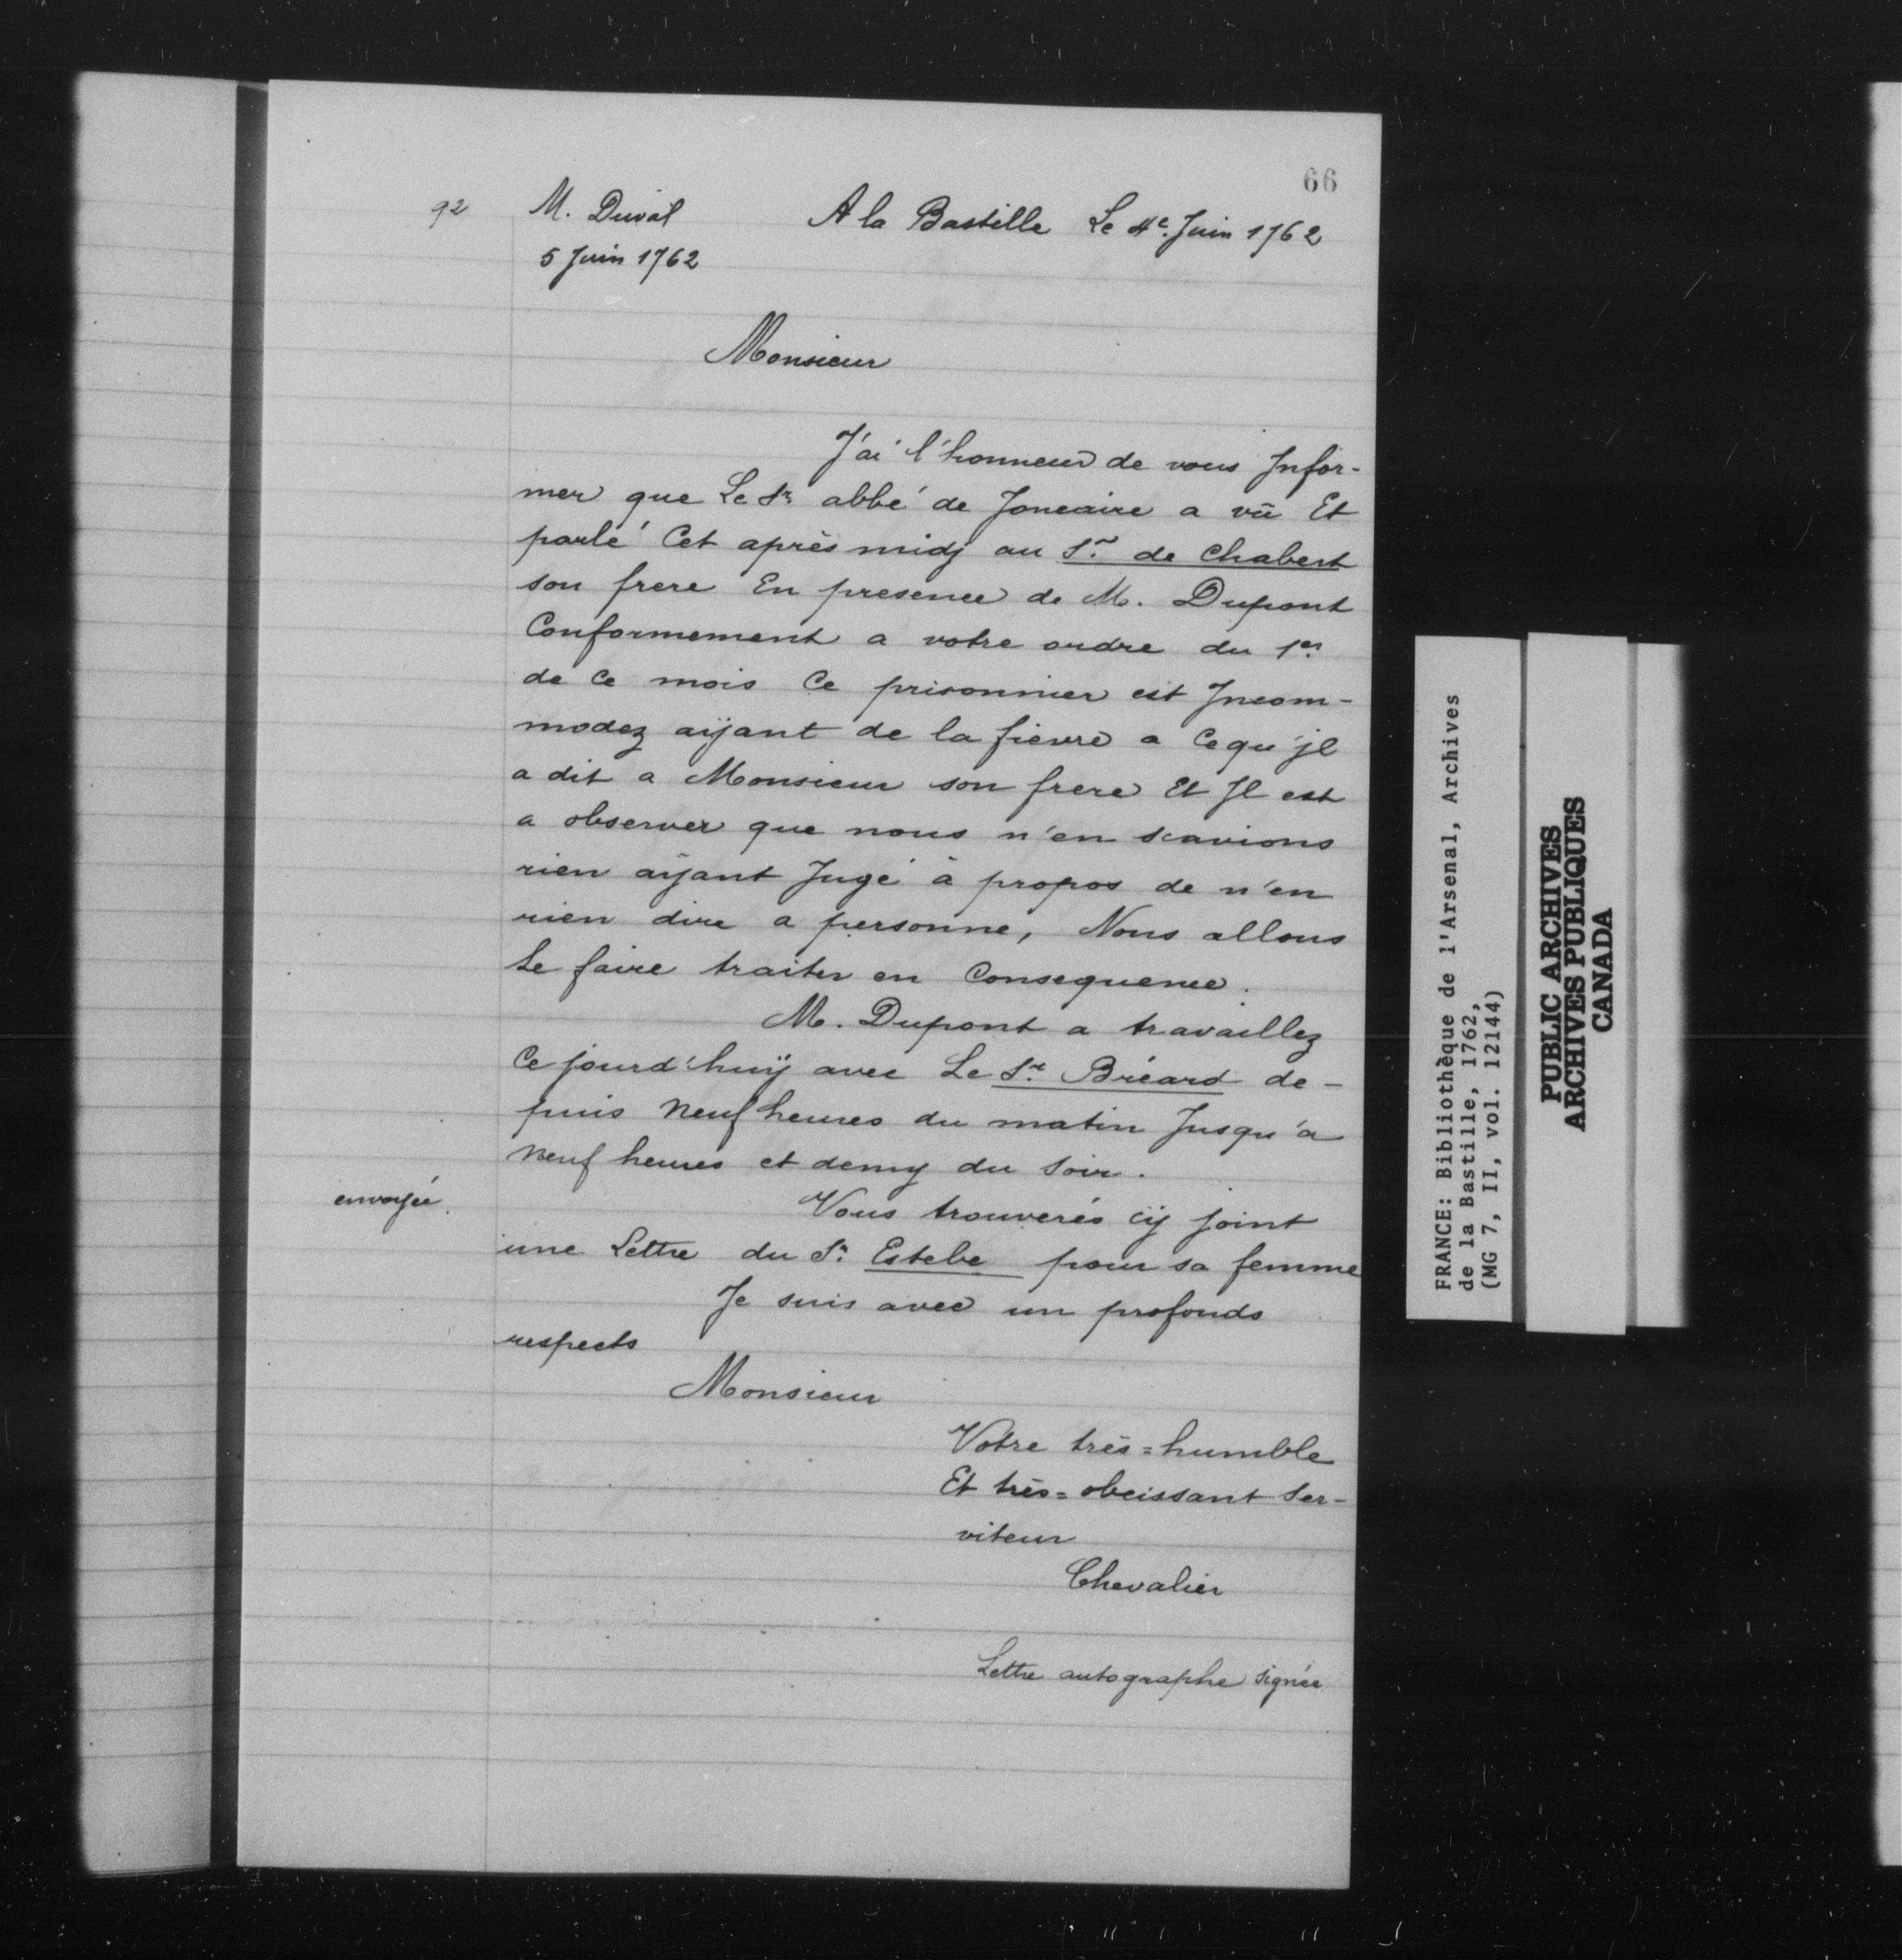 66
92
M. Duval
A la Bastille Le 4e. Juin 1762
5 Juin 1762
Monsieur
J'ai l'honneur de vous Jnfor-
mer que Le Sr. abbé de Joncaire a vû Et
parlé Cet après midj au Sr. de Chabert
son frere En presence de M. Dupont
Conformement a votre ordre du 1er.
de Ce mois Ce prisonnier est Jncom-
modez aÿant de la fievre a Cequ'jl
a dit a Monsieur son frere Et Jl est
a observer que nous n'en scavions
rien aÿant Jugé à propos de n'en
rien dire a personne, Nous allons
Le faire traiter en Consequence.
M. Dupont a travaillez
Cejourd'huÿ avec Le Sr. Bréard de-
puis Neuf heures du matin Jusqu'a
Neuf heures et demy du Soir.
envoyée.
Vous trouverés cÿ joint
une Lettre du Sr. Estebe pour sa femme
Je suis avec un profonds
respects
Monsieur
Votre très=humble
Et très=obeissant Ser-
viteur
Chevalier
Lettre autographe signée
FRANCE: Bibliothèque de l'Arsenal, Archives
de la Bastille, 1762,
(MG 7, II, vol. 12144)
PUBLIC ARCHIVES
ARCHIVES PUBLIQUES
CANADA